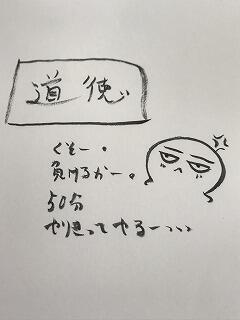 道徳
くそー。
負けるかー。
50分
やりきってやるー、、、